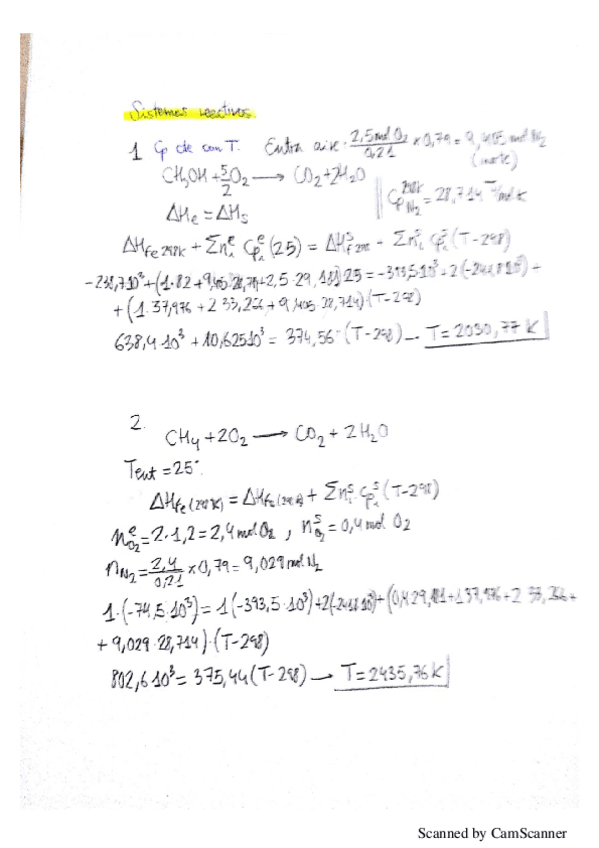 Sistemas reactivos
1 Cp cte con T. Entra aire · 2,5 mol O2 / 0,21 × 0,79 = 9,405 mol N2
(inerte)
CH3OH + 5/2 O2 → CO2 + 2H2O
Cp N2 298K = 28,714 J/mol K
ΔHe = ΔHs
ΔHfe 298K + Σni^e Cpi^e (25) = ΔHf 298^s + Σni^s Cpi^s (T-298)
-238,7·10³ + (1·82 + 9,405·28,714 + 2,5·29,181) 25 = -393,5·10³ + 2(-241,8·10³) +
+ (1·37,976 + 2·33,266 + 9,405·28,714)·(T-298)
638,4·10³ + 10,625·10³ = 374,56·(T-298) → T = 2030,77 K
2.
CH4 + 2O2 → CO2 + 2H2O
Tent = 25°.
ΔHfe (298K) = ΔHfs (298K) + Σni^s Cpi^s (T-298)
nO2^e = 2·1,2 = 2,4 mol O2 , nO2^s = 0,4 mol O2
nN2 = 2,4 / 0,21 × 0,79 = 9,029 mol N2
1·(-74,5·10³) = 1(-393,5·10³) + 2(-241,8·10³) + (0,4·29,181 + 1·37,976 + 2·33,266 +
+ 9,029·28,714)·(T-298)
802,6·10³ = 375,44 (T-298) → T = 2435,76 K
Scanned by CamScanner